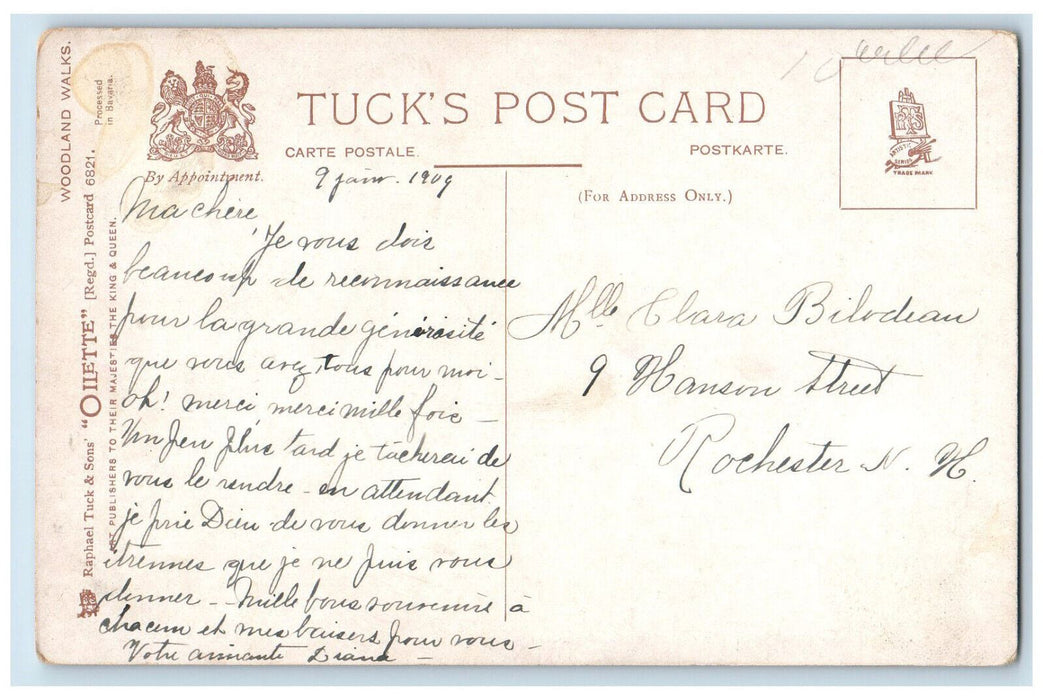 WOODLAND WALKS.
Processed
in Bavaria.
Raphael Tuck & Sons' "OILETTE" [Regd.] Postcard 6821.
ART PUBLISHERS TO THEIR MAJESTIES THE KING & QUEEN.
By Appointment.
TUCK'S POST CARD
CARTE POSTALE.
POSTKARTE.
(FOR ADDRESS ONLY.)
ARTISTIC
SERIES
TRADE MARK
9 janv. 1909
Ma chère
Je vous dois
beaucoup de reconnaissance
pour la grande générosité
que vous avez tous pour moi -
oh! merci merci mille fois -
Un peu plus tard je tâcherai de
vous le rendre - en attendant
je prie Dieu de vous donner les
étrennes que je ne puis vous
donner - - Mille bons souvenirs à
chacun et mes baisers pour vous -
Votre aimante Diana -
Mlle Clara Bilodeau
9 Hanson Street
Rochester N. H.